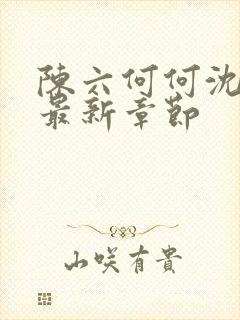 陳六何何沈
最新章節
山咲有貴